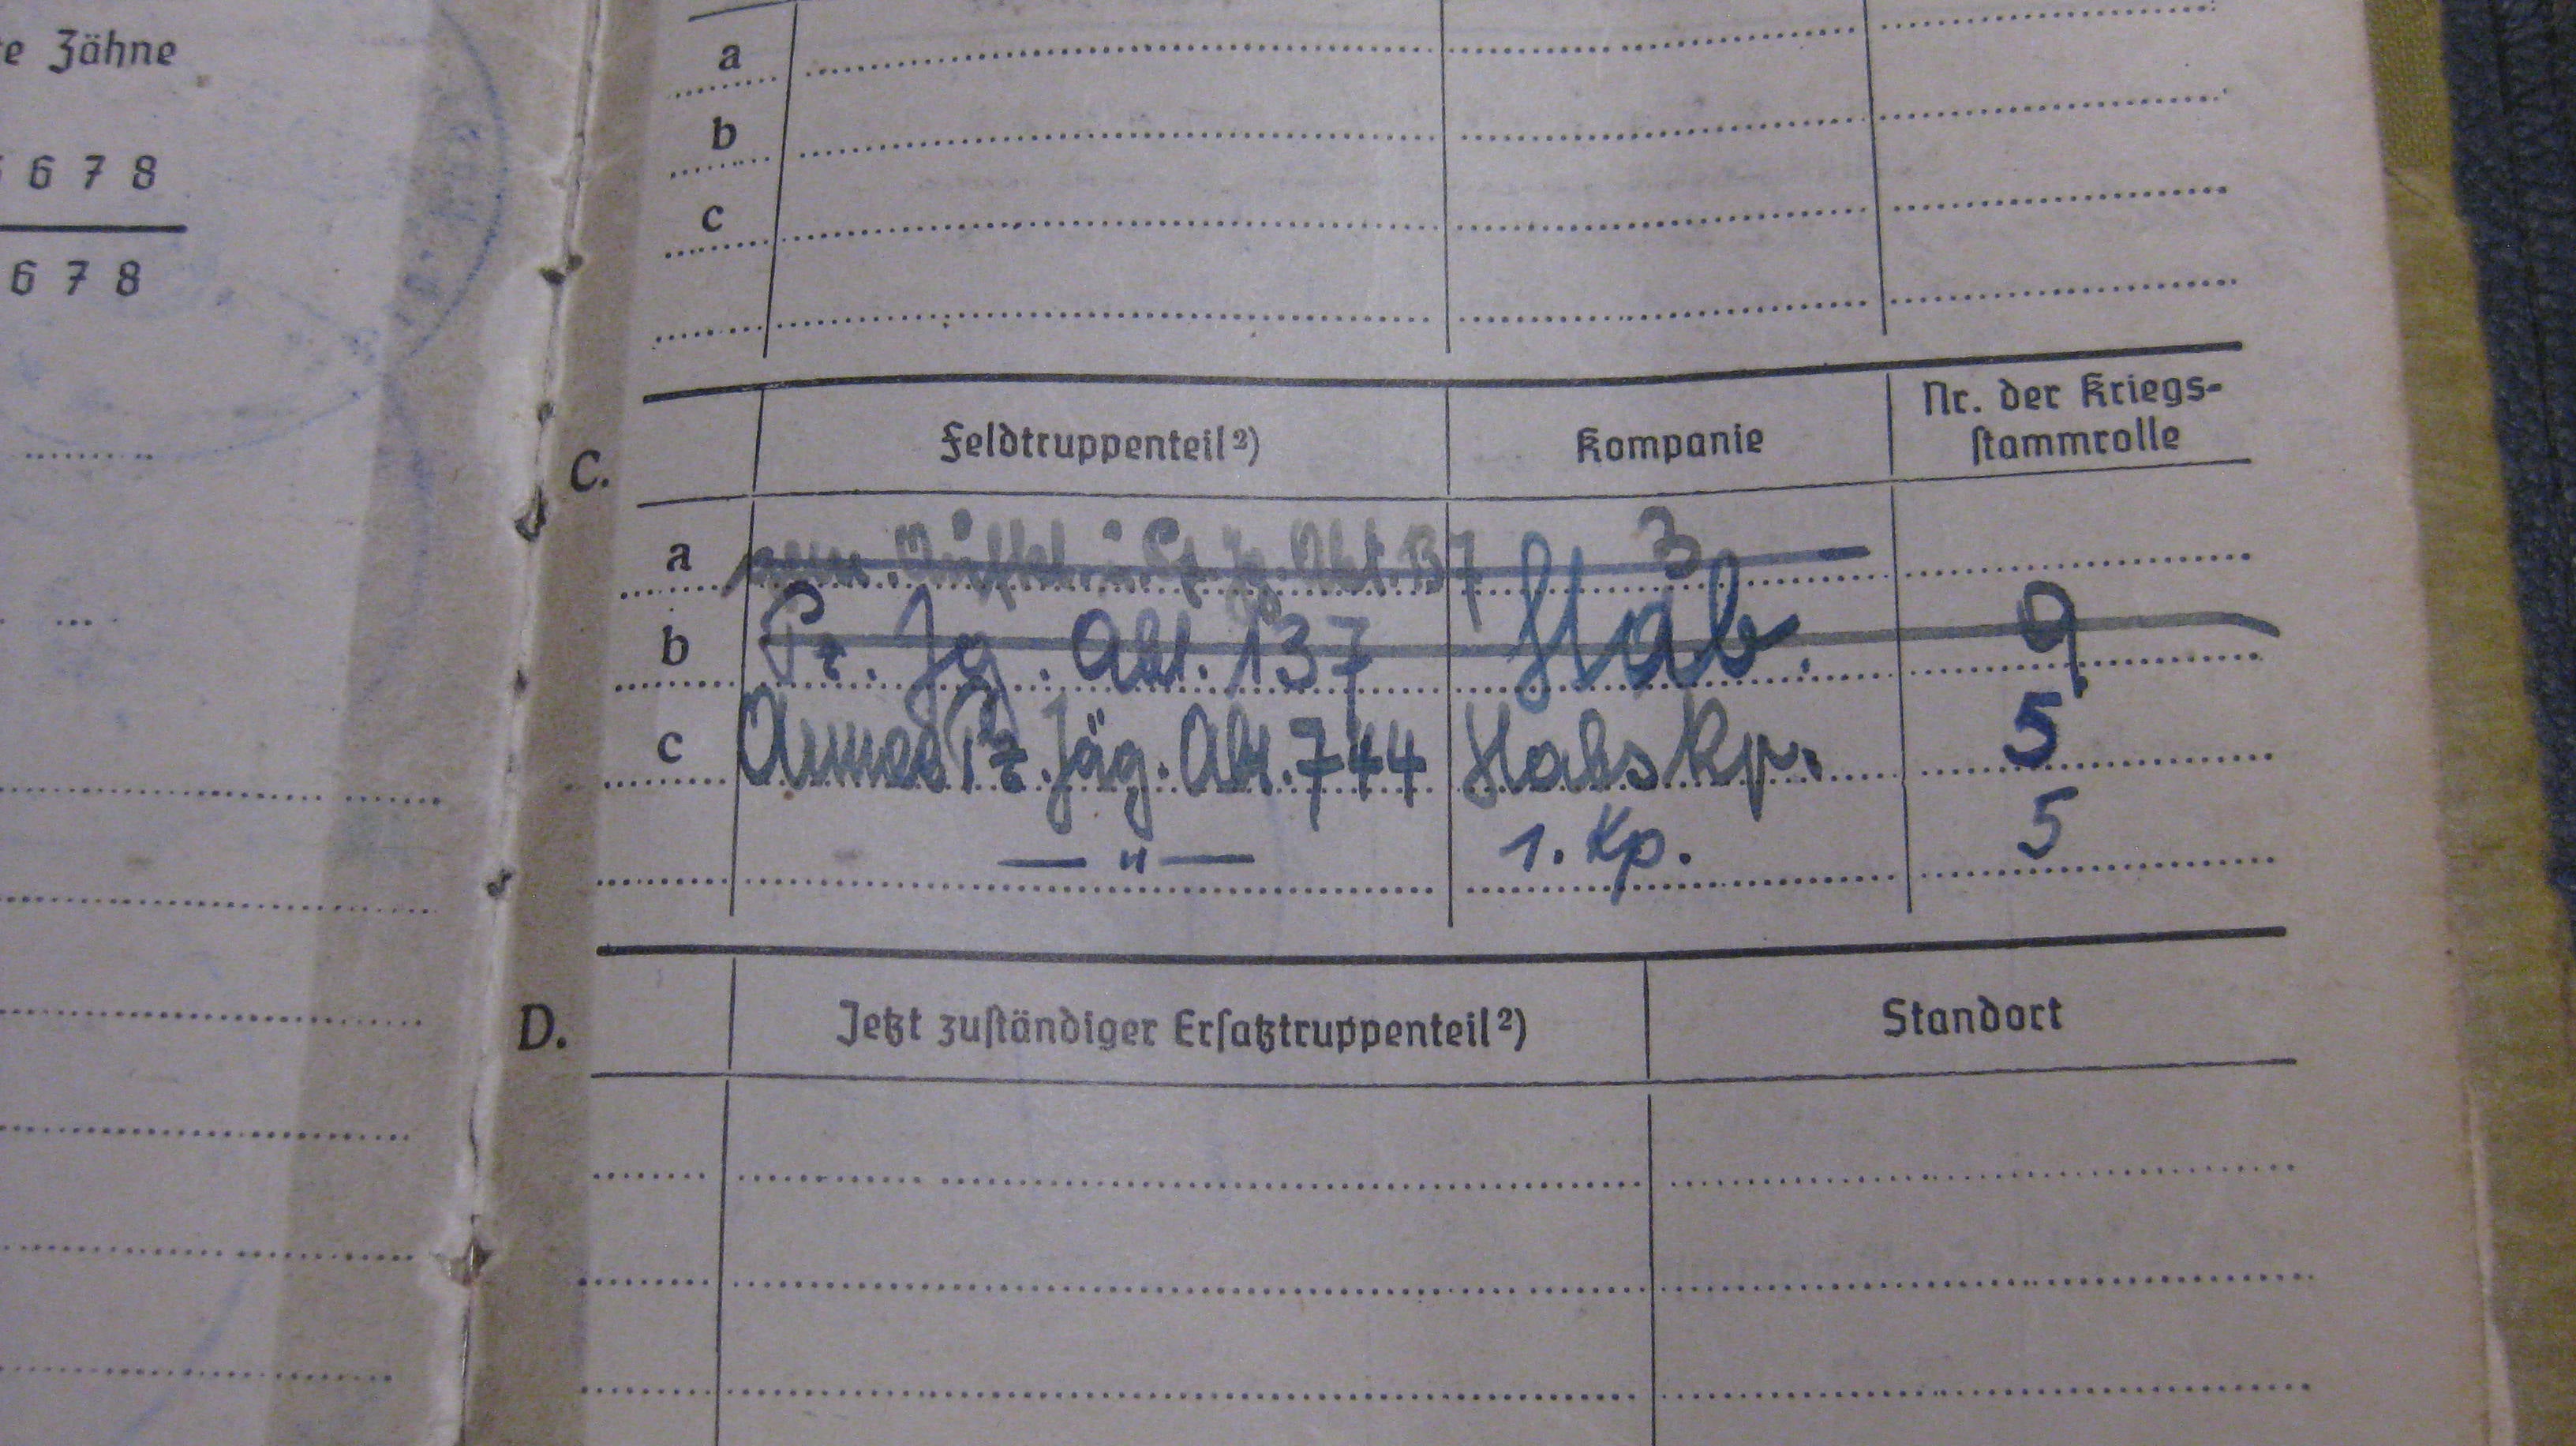 te Zähne
6 7 8
6 7 8
a
b
c
C.
Feldtruppenteil ²)
Kompanie
Nr. der Kriegs-
stammrolle
a
Pz. Jg. Abt. 137
3
b
Pz. Jg. Abt. 137
Stab.
9
c
Armee Pz. Jäg. Abt. 744
Stabs Kp.
5
— " —
1. Kp.
5
D.
Jetzt zuständiger Ersatztruppenteil ²)
Standort